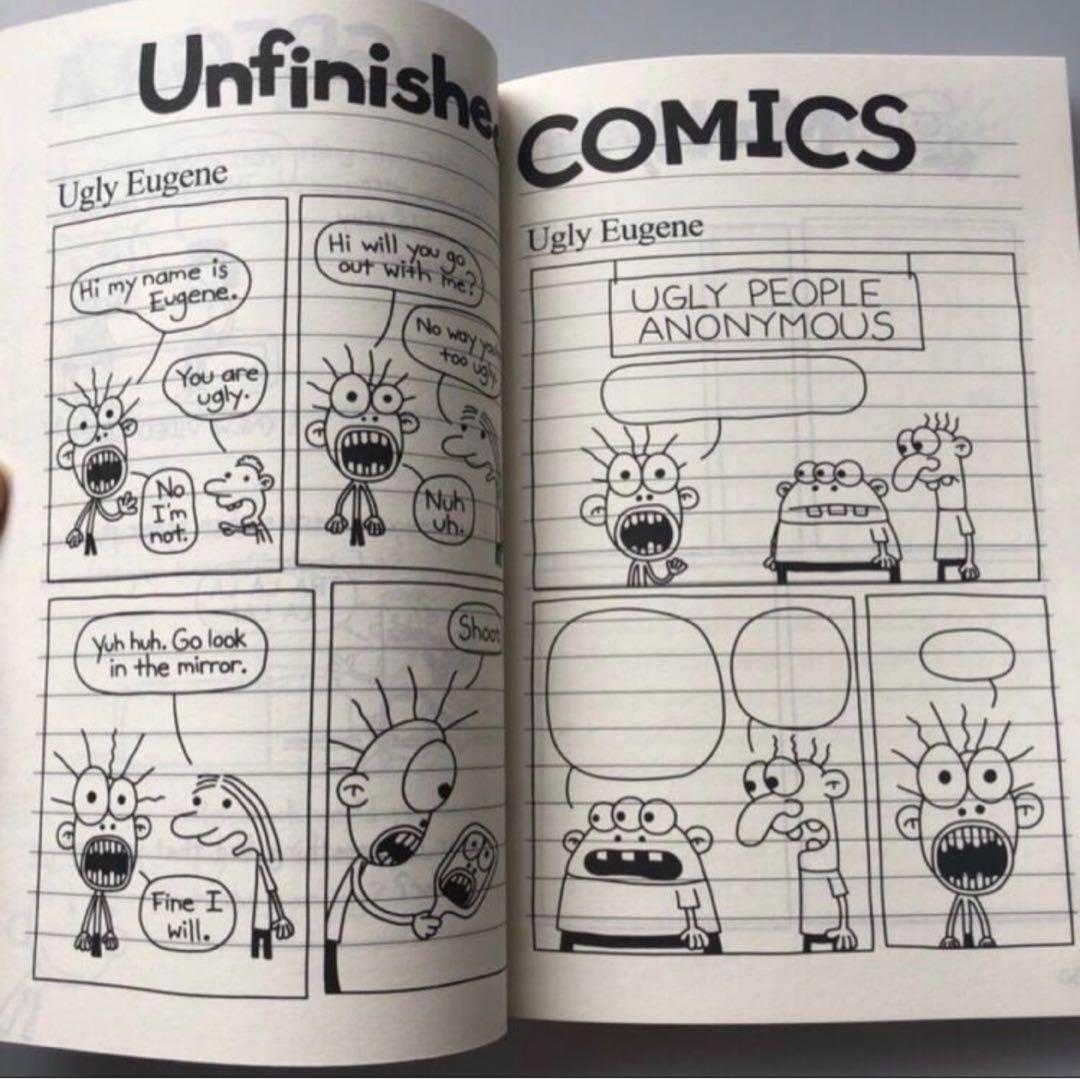 Unfinishe
COMICS
Ugly Eugene
Hi my name is
Eugene.
You are
ugly.
No
I'm
not.
Hi will you go
out with me?
No way
too ugly
Nuh
uh.
Yuh huh. Go look
in the mirror.
Fine I
will.
Shoot
Ugly Eugene
UGLY PEOPLE
ANONYMOUS